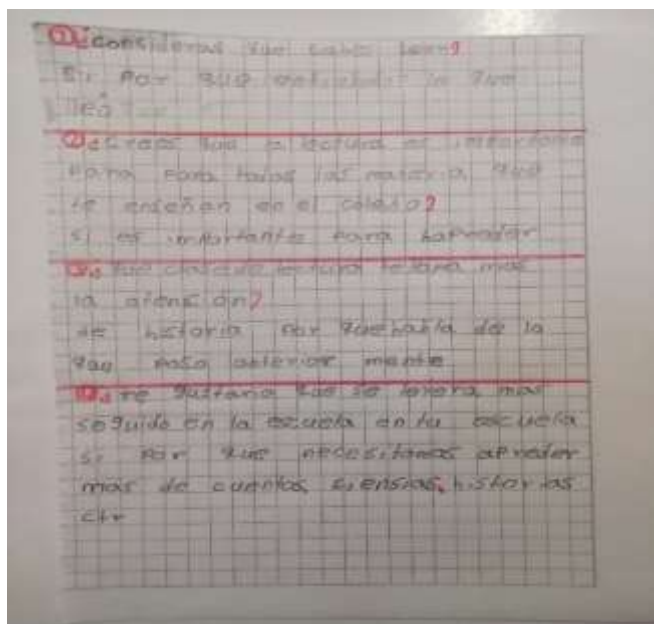 ① ¿consideras que sabes leer?
si por que entiendo lo que
leo
② ¿crees que la lectura es importante
para para todas las materia que
te enseñan en el colegio?
si es importante para aprender
¿que clase de lectura te llama mas
la atensión?
de historia por que habla de lo
que paso anterior mente
te gustaria que se leyera mas
seguido en la escuela en tu escuela
si por que necesitamos apreder
mas de cuentos, siensias, historias